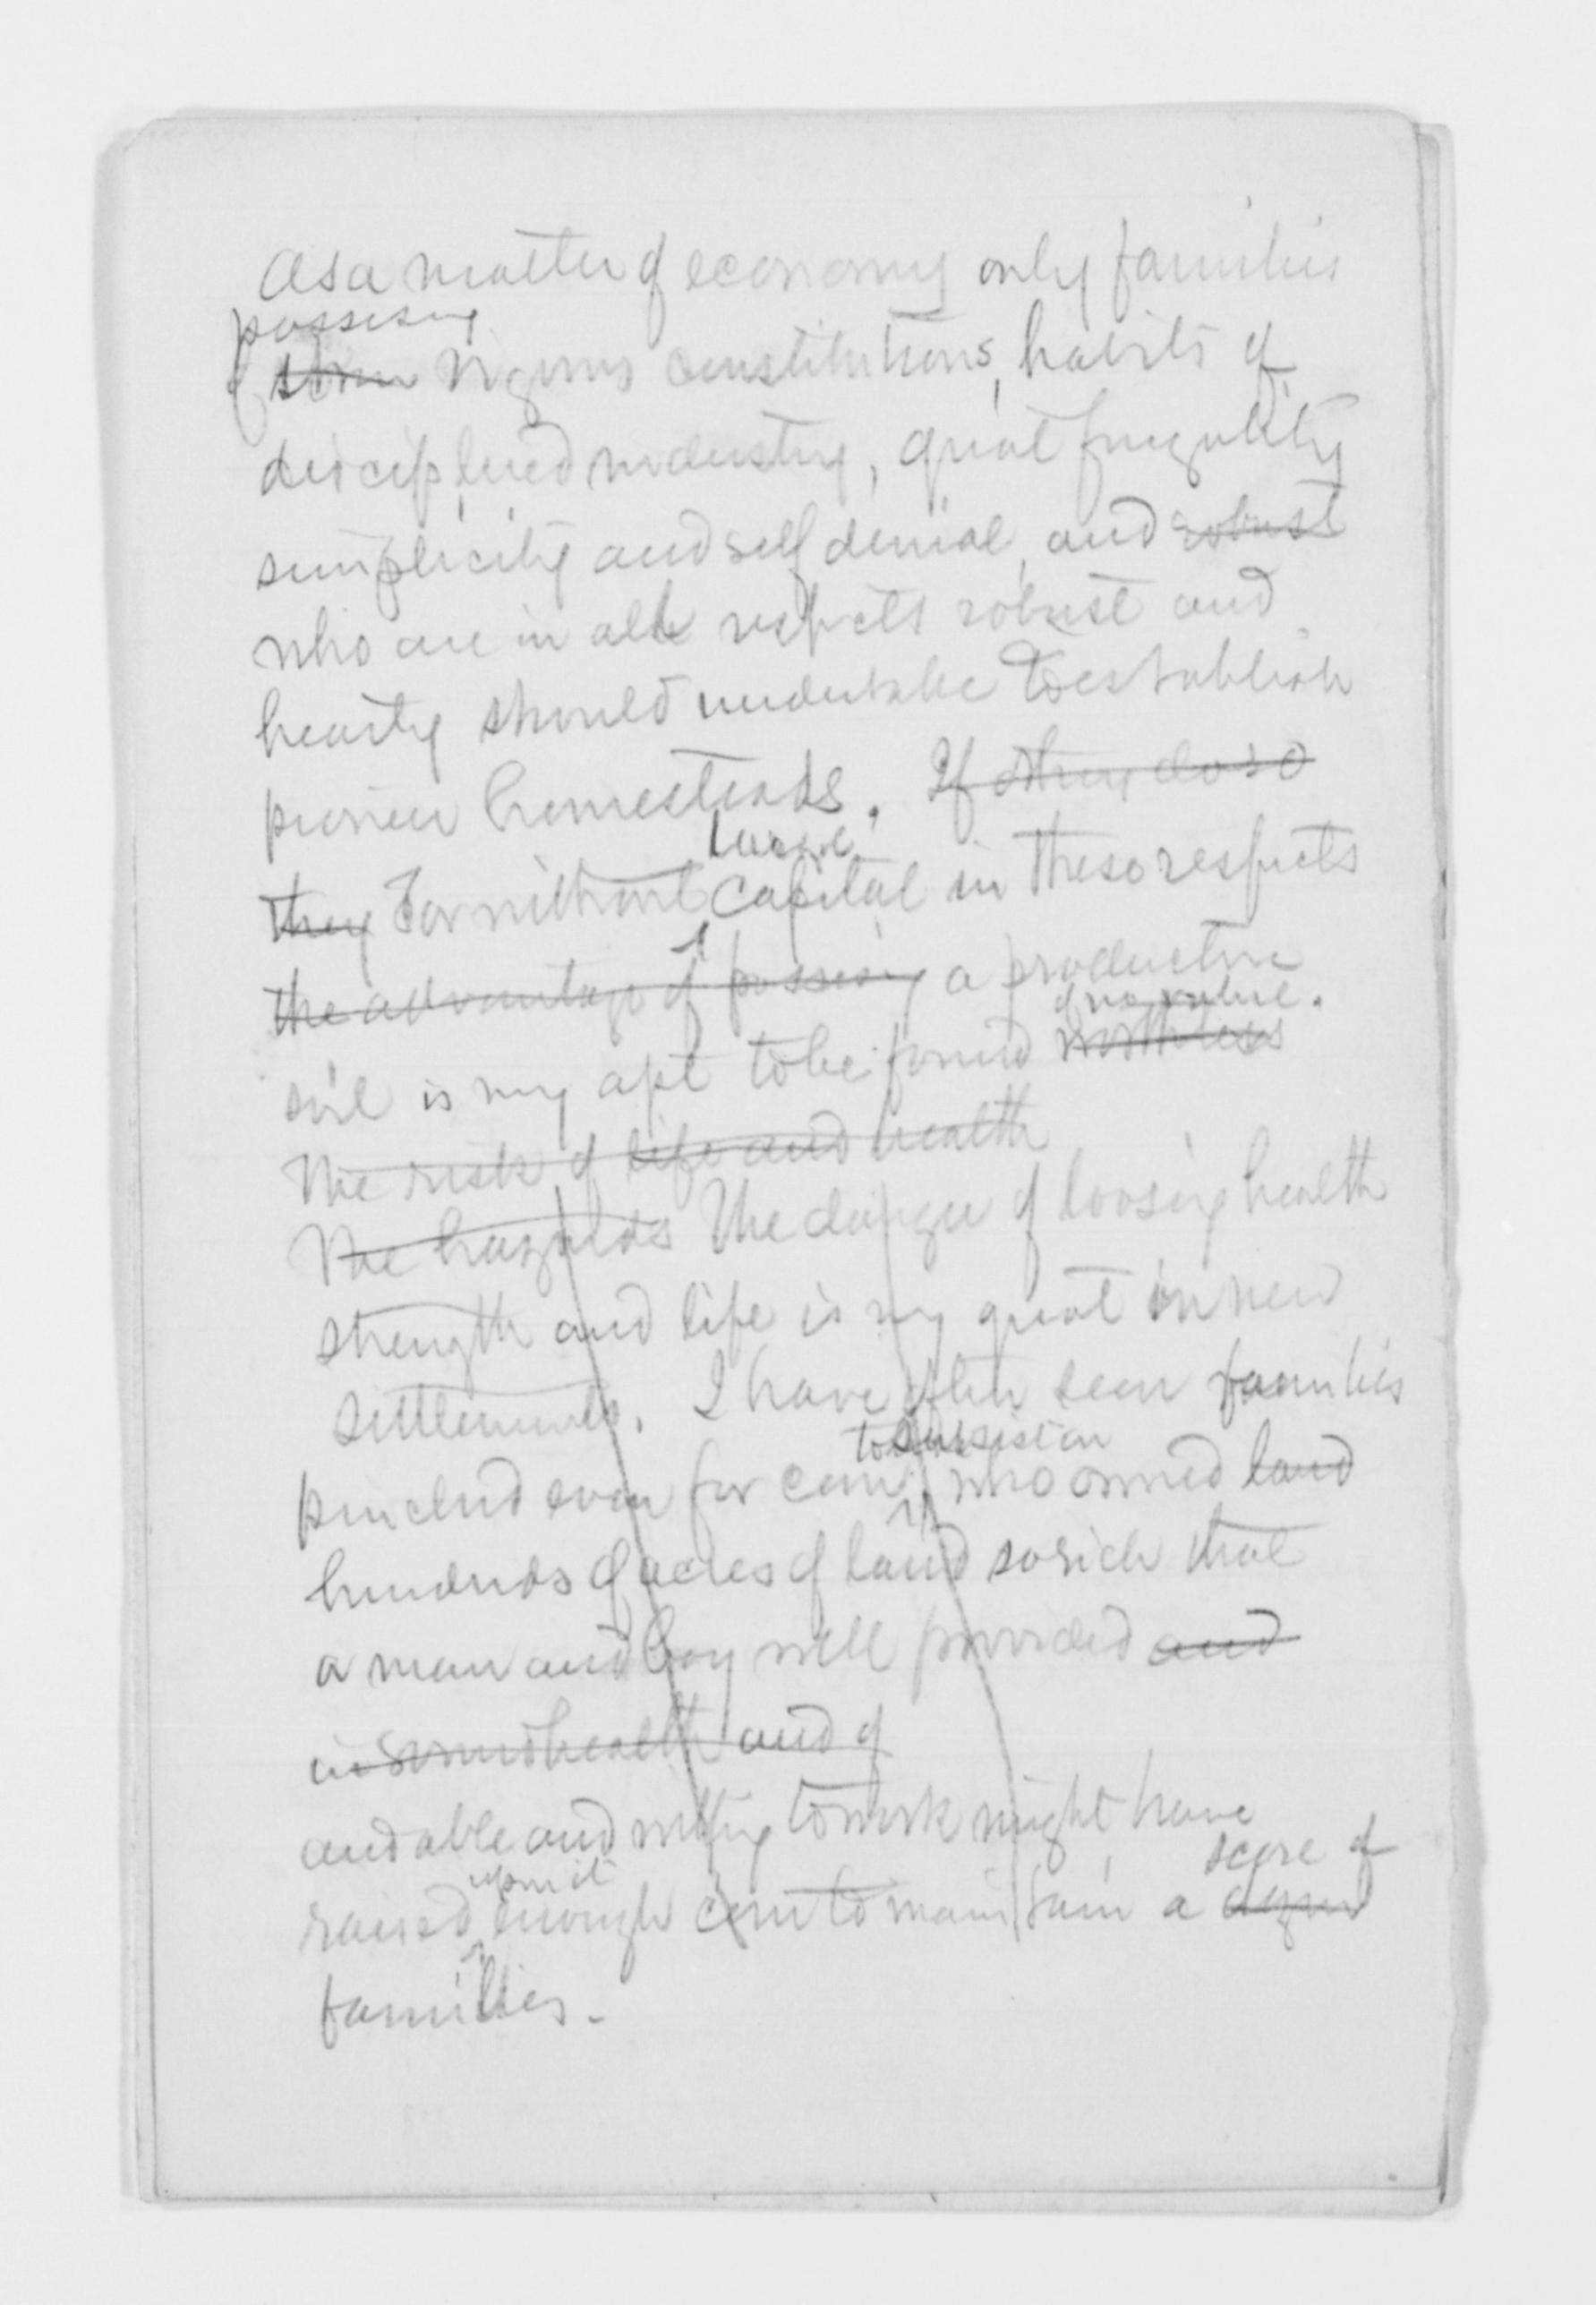 As a matter of economy only families
possessing
of vigorous constitutions, habits of
disciplined industry, great frugality
simplicity and self denial, and robust
who are in all respects robust and
hearty should undertake to establish
pioneer homesteads. If they do so
large
they For without capital in these respects
the advantage of possessing a productive
of no value.
soil is very apt to be found worthless
The risk of life and health
The hazards The danger of loosing health
strength and life is very great in new
settlements. I have often seen families
to subsist on
pinched even for corn who owned land
hundreds of acres of land so rich that
a man and boy well provided and
in sound health and of
and able and willing to work might have
score of
upon it
raised enough corn to maintain a dozen
families.